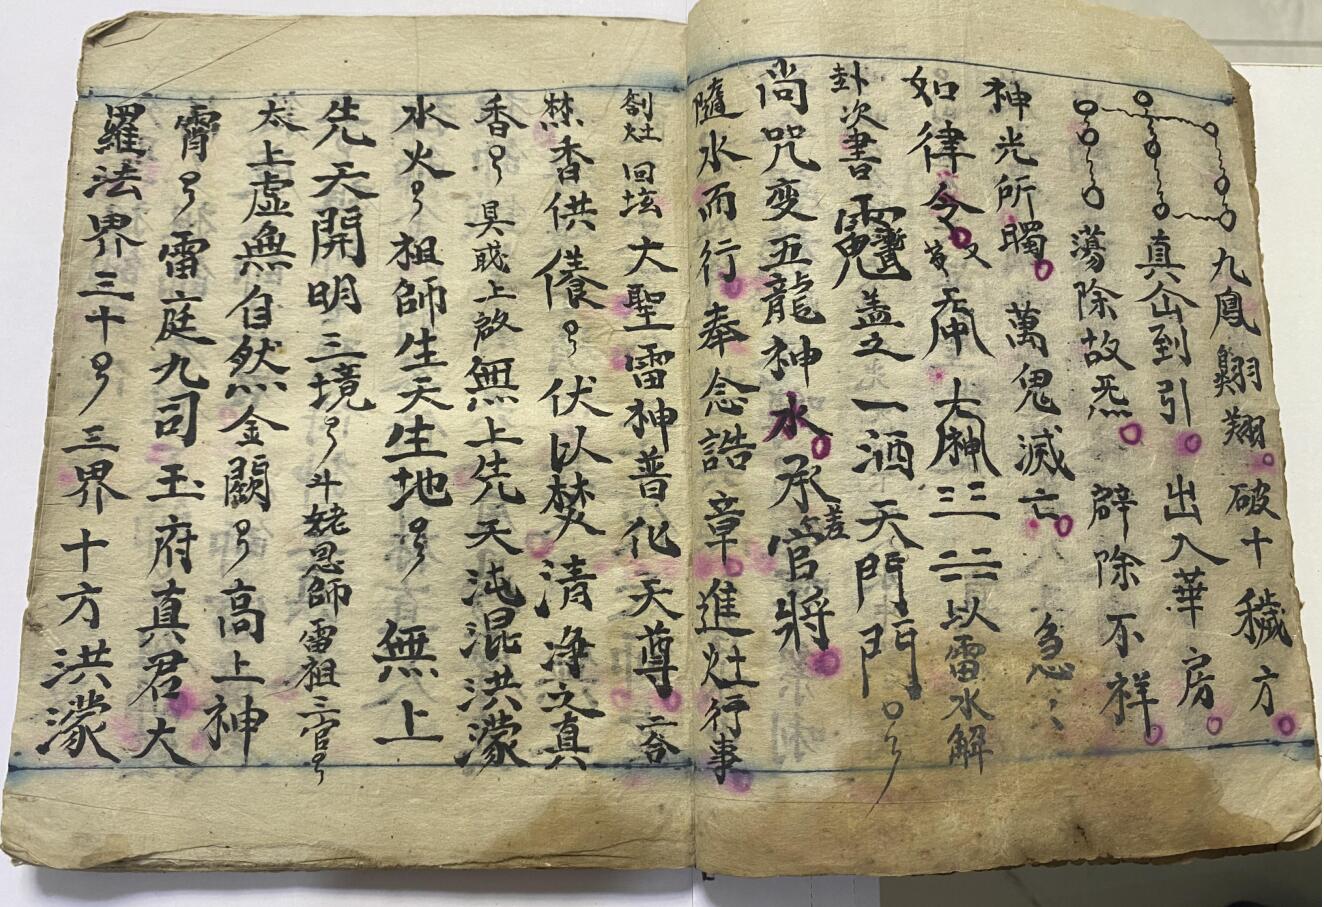 九鳳翱翔破十穢方
真仙到引出入華房
蕩除故炁辟除不祥
神光所燭萬鬼滅亡急
如律令又 大神 三三 二二以雷水解
卦次書 蓋之一洒天門門
尚咒变五龍神水承差官將
隨水而行奉念誥章進灶行事
劄灶回壇大聖雷神普化天尊
焚香供養伏以焚清淨之真
香具戝上啟無上先天沌混洪濛
水火祖師生天生地無上
先天開明三境斗姥恩師雷祖三官
太上虛無自然金闕高上神
霄雷庭九司玉府真君大
羅法界三十三界十方洪濛